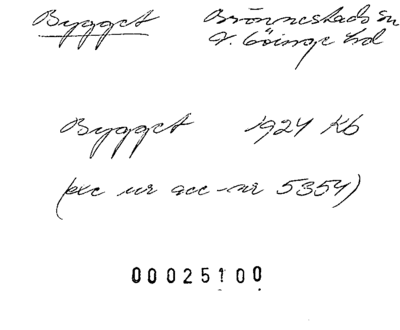 Bygget Brönnestads sn
V. Göinge hd
Bygget 1924 Kb
(exc ur acc-nr 5354)
00025100